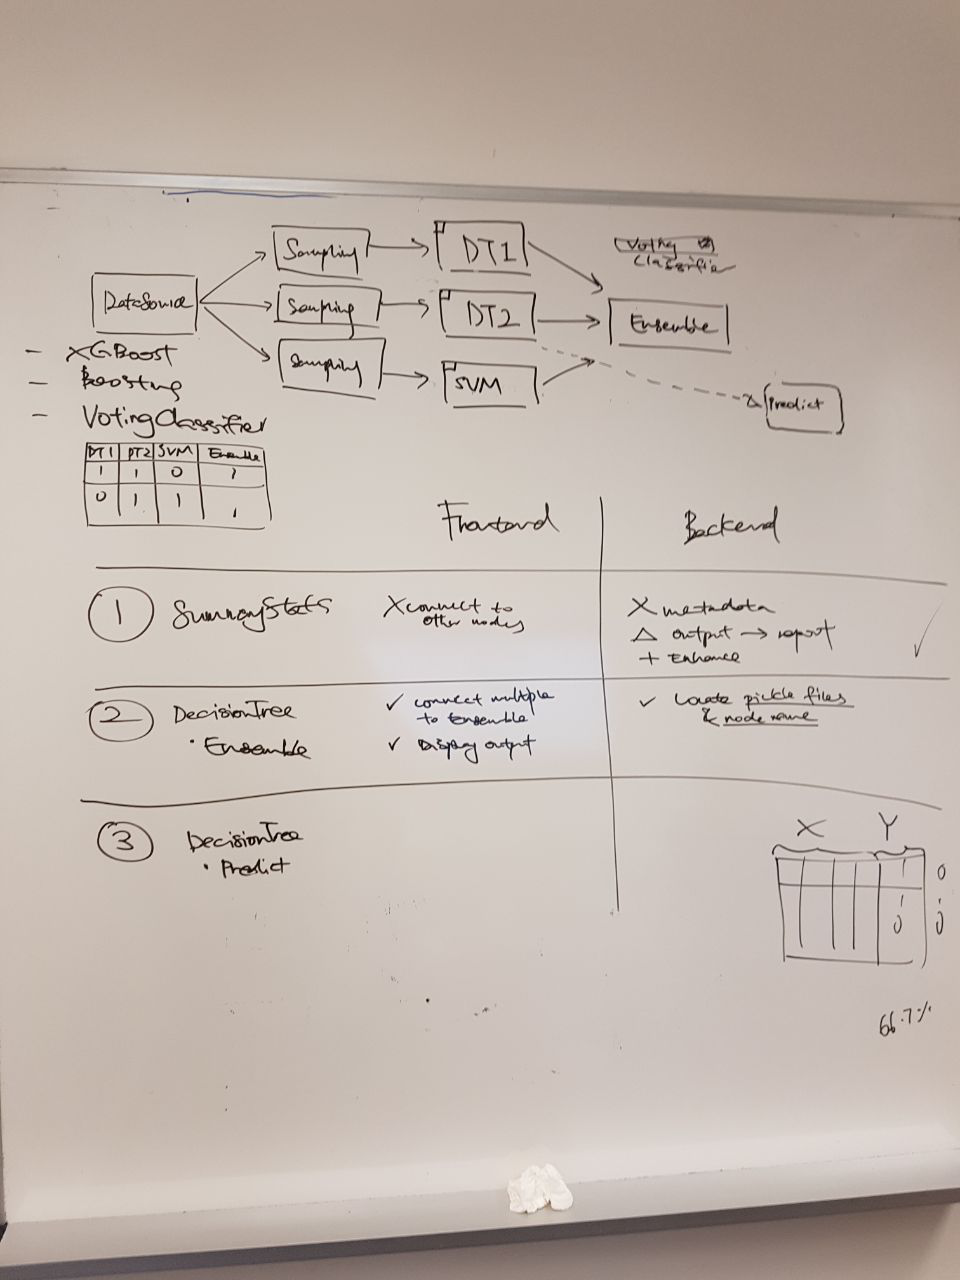 Sampling
DT1
Voting
Classifie
DataSource
Sampling
DT2
Ensemble
Sampling
SVM
Predict
- XGBoost
- Boosting
- VotingClassifier
DT1 DT2 SVM Ensemble
1 1 0 1
0 1 1 1
Frontend Backend
1 SummaryStats
X connect to
other nodes
X metadata
△ output → report
+ Enhance
2 DecisionTree
• Ensemble
✓ connect multiple
to Ensemble
✓ Display output
✓ Locate pickle files
& node name
3 DecisionTree
• Predict
X Y
1 0
1 1
0 0
66.7%